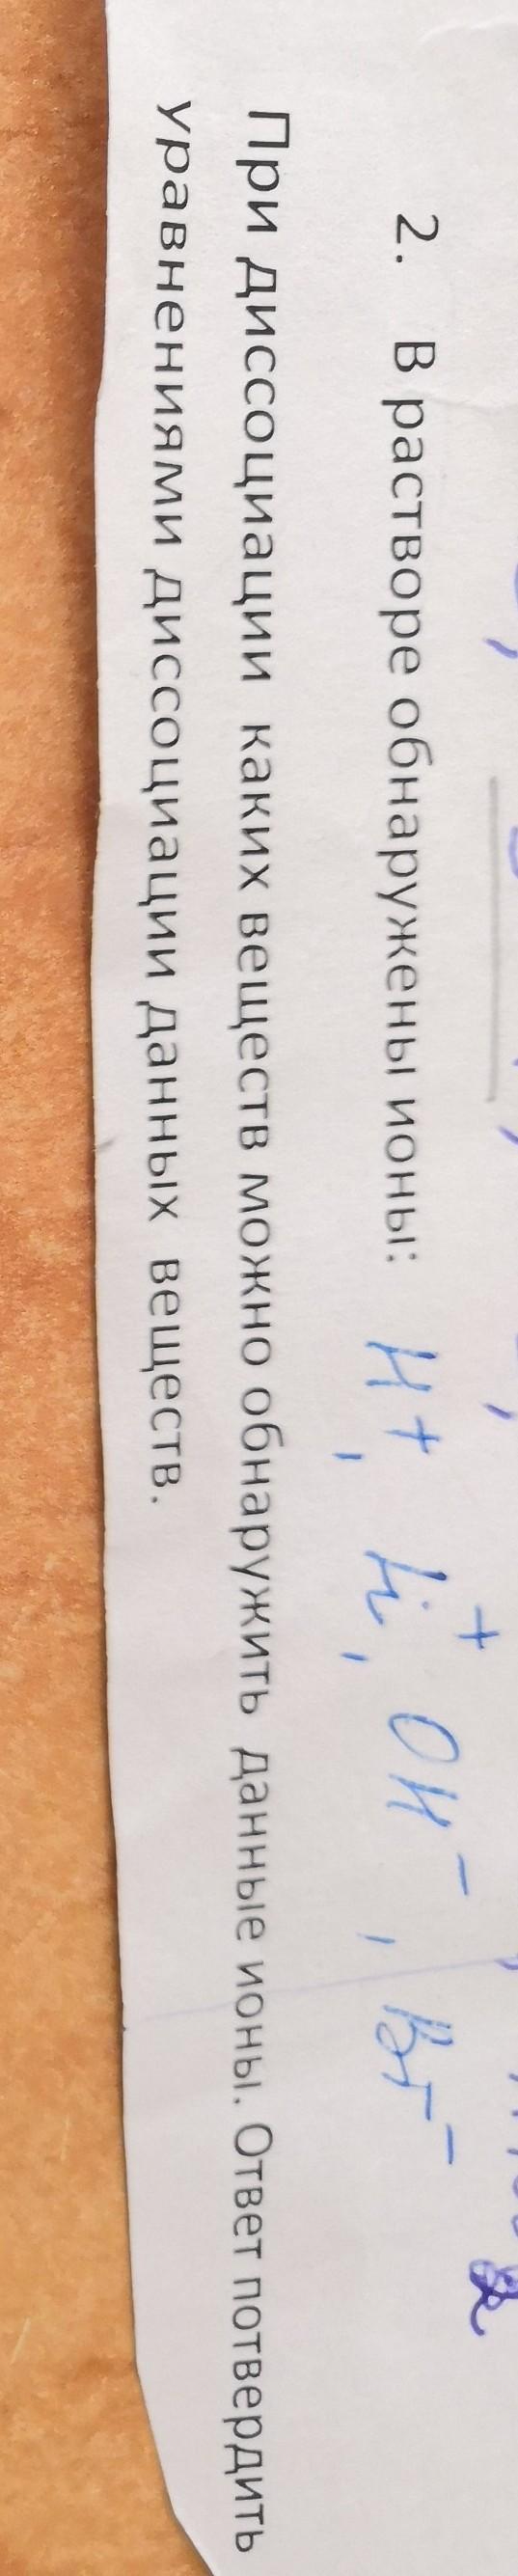 2. В растворе обнаружены ионы: H+, Li+, OH-, Br-
При диссоциации каких веществ можно обнаружить данные ионы. Ответ потвердить
уравнениями диссоциации данных веществ.